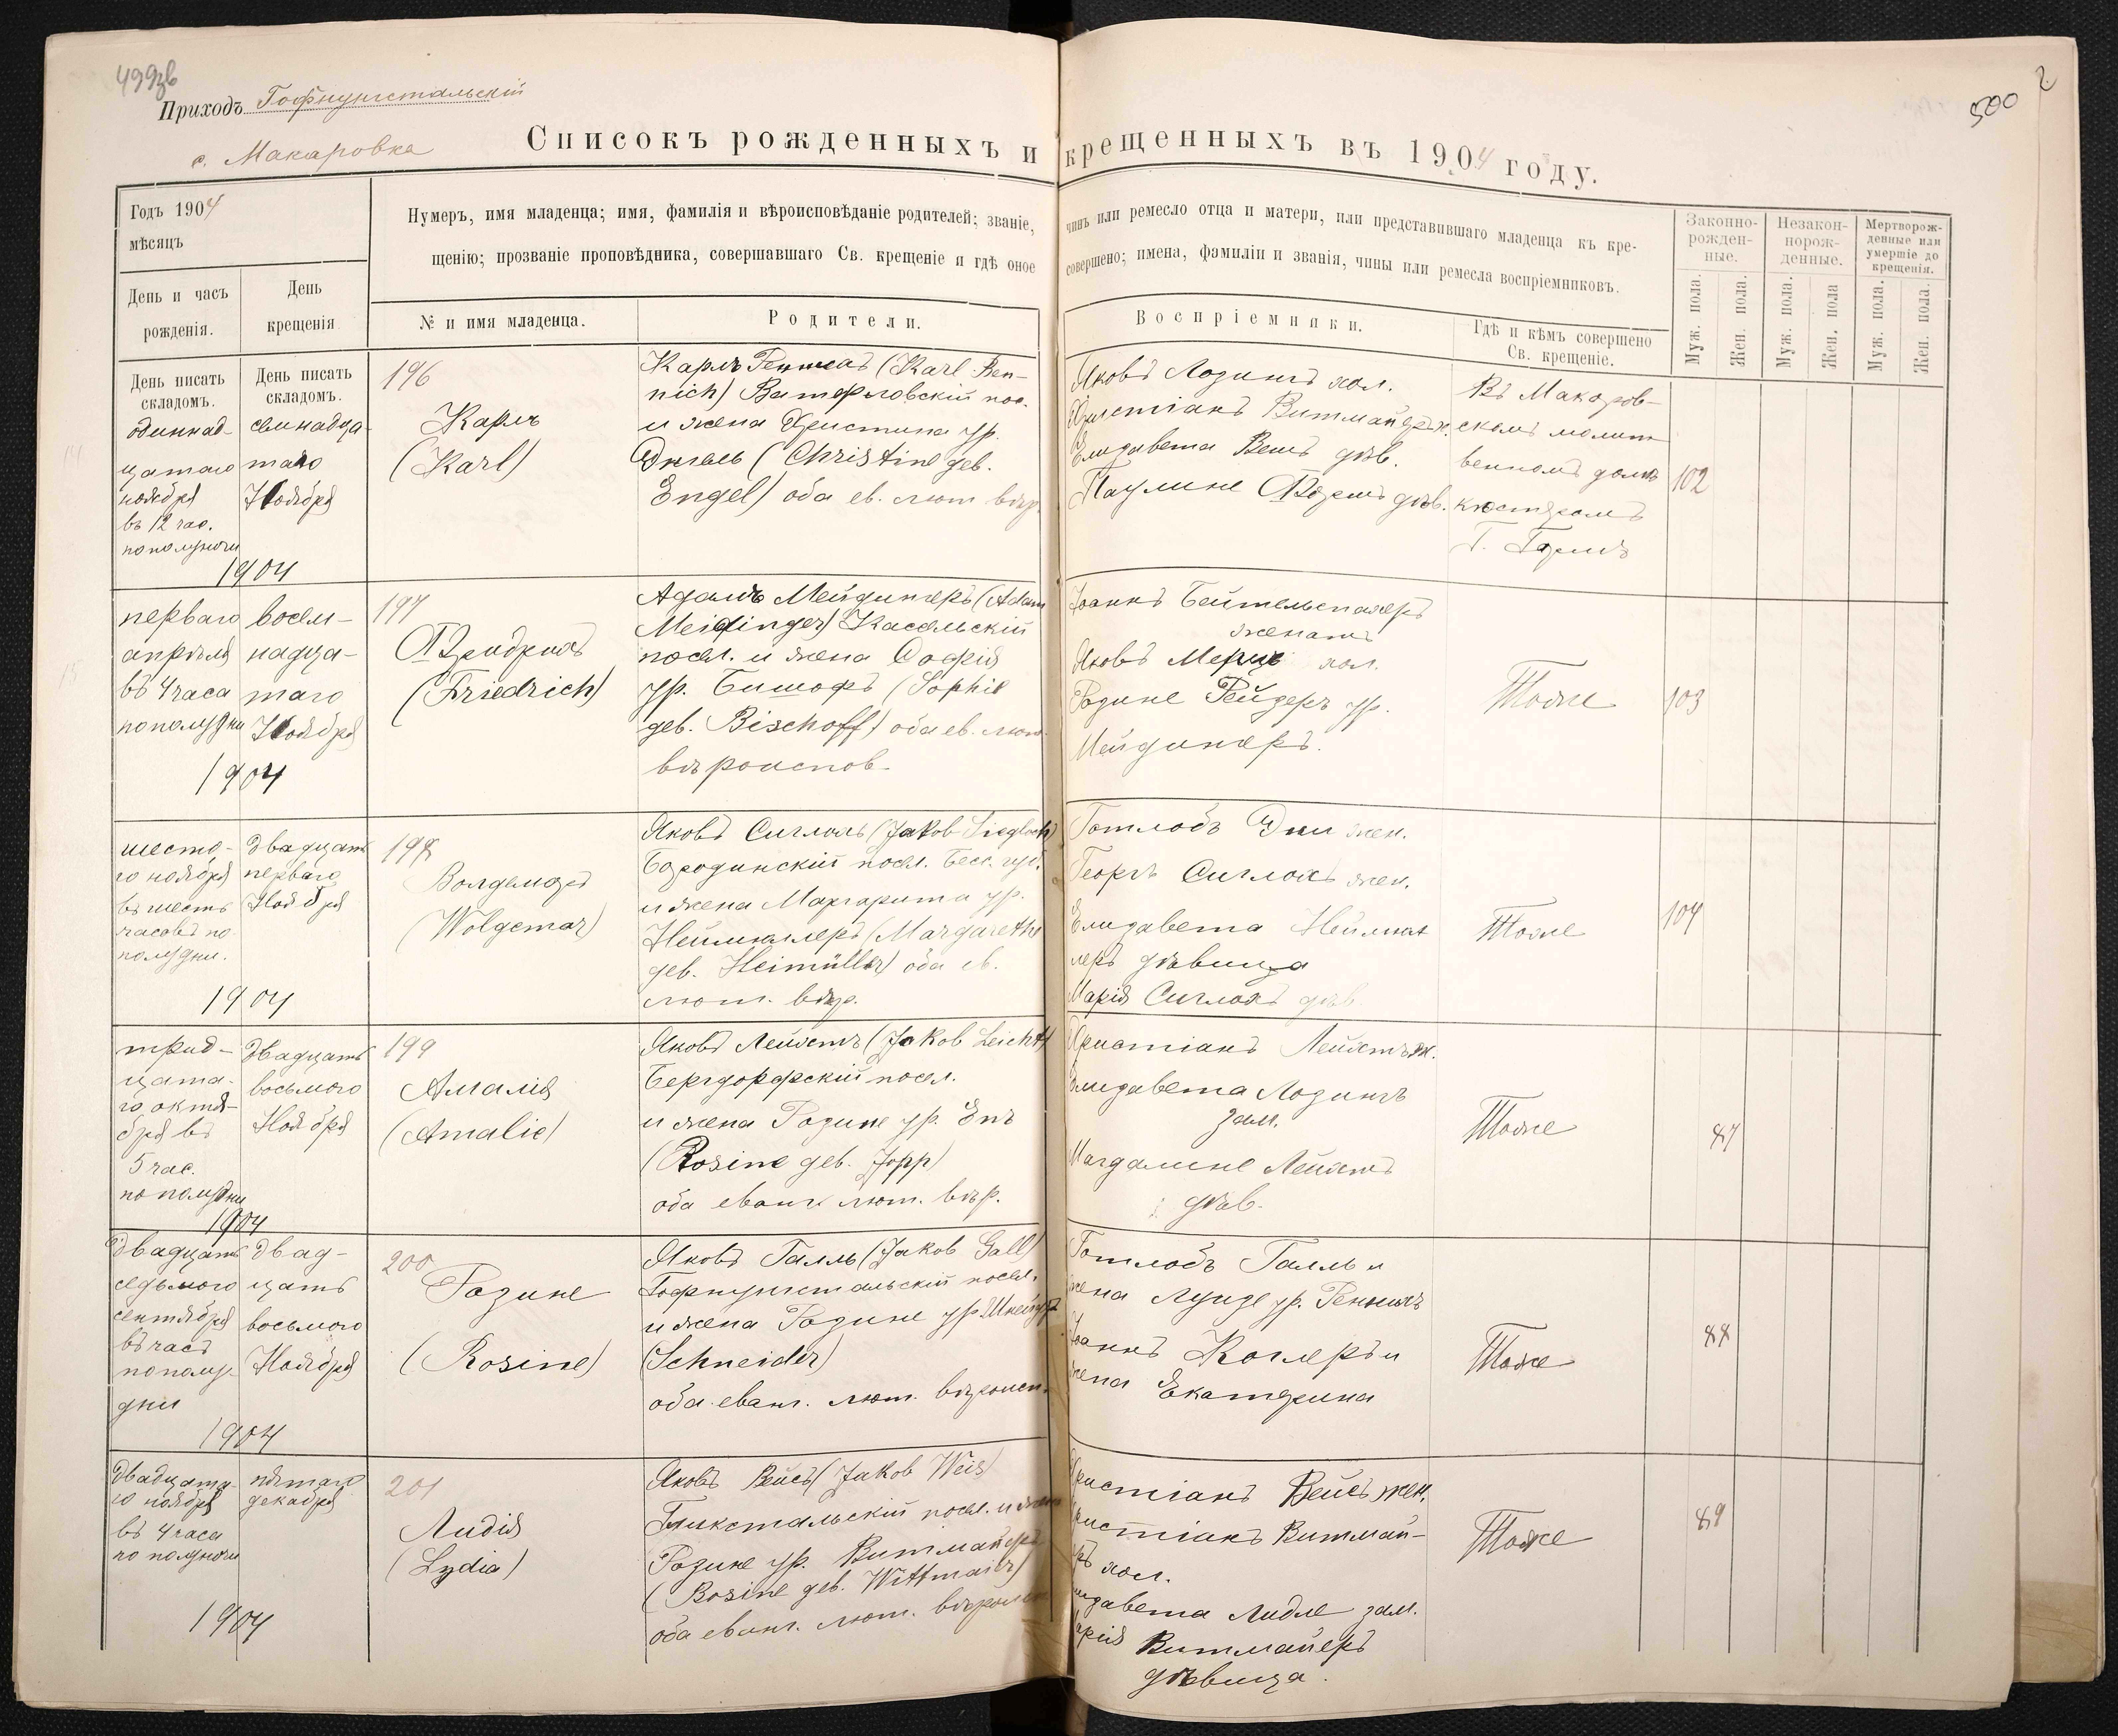 499зв
Приходъ Гофнунгстальскій
с. Макаровка
500
2
Списокъ рожденныхъ и крещенныхъ въ 1904 году.
Годъ 1904
мѣсяцъ
День и часъ рожденія.
День крещенія
Нумеръ, имя младенца; имя, фамилія и вѣроисповѣданіе родителей; званіе, чинъ или ремесло отца и матери, или представившаго младенца къ кре-
щенію; прозваніе проповѣдника, совершавшаго Св. крещеніе и гдѣ оное совершено; имена, фамиліи и званія, чины или ремесла воспріемниковъ.
№ и имя младенца.
Родители.
Воспріемники.
Гдѣ и кѣмъ совершено
Св. крещеніе.
Законно-
рожден-
ные.
Незакон-
норож-
денные.
Мертворож-
денные или
умершіе до
крещенія.
Муж. пола
Жен. пола.
Муж. пола.
Жен. пола
Муж. пола.
Жен. пола.
День писать
складомъ.
День писать
складомъ.
одиннад-
цатаго
ноября
въ 12 час.
пополуночи
1904
семнадца-
таго
Ноября
196
Карлъ
(Karl)
Карлъ (Karl Ren-
nich)
и жена Христина ур.
Энгель (Christine geb.
Engel) оба ев. лют. вѣр.
Яковъ Лозингъ хол.
Христіанъ Витмайеръ х.
Елизавета Вейсъ дѣв.
Паулине дѣв.
Въ Макаров-
скомъ молит
венномъ домѣ
кюстеромъ
Г.
102
перваго
апрѣля
въ 4 часа
пополудни
1904
восем-
надца-
таго
Ноября
197
Фридрихъ
(Friedrich)
Адамъ Мейдингеръ (Adam
Meidinger) Кассельскій
посел. и жена Софія
ур. Бишофъ (Sophie
geb. Bischoff) оба ев. лют.
вѣроисповѣ-
Іоаннъ Бейтельспахеръ
женатъ
Яковъ Мерцъ хол.
Розине Рейдеръ ур.
Мейдингеръ.
Тоже
103
шесто-
го ноября
въ шесть
часовъ по
полудни.
1904
двадцать
перваго
Ноября
198
Волдемаръ
(Woldemar)
Яковъ Сиглохъ (Jakob Siegloch)
Бородинскій посел. Бесс. губ.
и жена Маргарита ур.
Геймиллеръ (Margarethe
geb. Heimüller) оба ев.
лют. вѣр.
Готлобъ Эпи жен.
Георгъ Сиглохъ жен.
Елизавета Геймил
леръ дѣвица
Марія Сиглохъ дѣв.
Тоже
104
трид-
цата-
го октя-
бря въ
5 час.
пополудни
1904
двадцать
восьмого
Ноября
199
Амалія
(Amalie)
Яковъ Лейхтъ (Jakob Leicht)
Бергдорфскій посел.
и жена Розине ур. Епъ
(Rosine geb. Jopp)
оба еванг. лют. вѣр.
Христіанъ Лейхтъ ж.
Елизавета Лозингъ
зам.
Магдалине Лейхтъ
дѣв.
Тоже
87
двадцать
седьмого
сентября
въ часъ
пополу-
дни
1904
двад-
цать
восьмого
Ноября
200
Розине
(Rosine)
Яковъ Галль (Jakob Gall)
Гофнунгстальскій посел.
и жена Розине ур. Шнейдеръ
(Schneider)
оба еванг. лют. вѣроисп.
Готлобъ Галль и
жена Луизе ур. Реннихъ
Іоаннъ Коглеръ и
жена Екатерина
Тоже
88
двадцата-
го ноября
въ 4 часа
по полуночи
1904
пятаго
декабря
201
Лидія
(Lydia)
Яковъ Вейсъ (Jakob Weis)
Гликстальскій посел. и жена
Розине ур. Витмайеръ
(Rosine geb. Wittmaier)
оба еванг. лют. вѣроисп.
Христіанъ Вейсъ жен.
Христіанъ Витмай-
еръ хол.
Елизавета Лидле зам.
Марія Витмайеръ
дѣвица.
Тоже
89